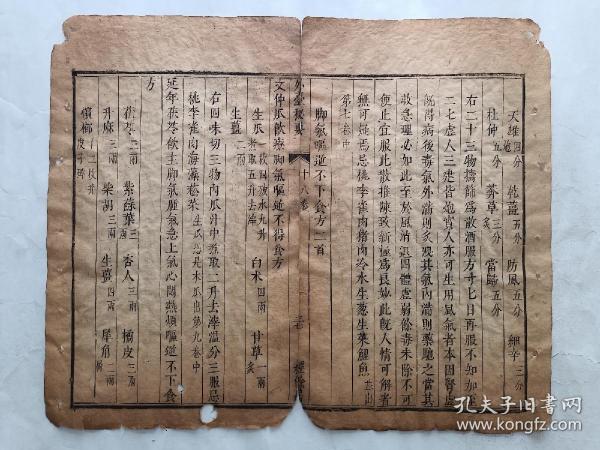 天雄四分 乾薑五分 防風五分 細辛三分
杜仲五分 莽草三分炙 當歸五分
右二十三物擣篩為散酒服方寸匕日再服不知加至
二匕虛人三建皆炮實人亦可生用風氣者本因腎虛
既得病後毒氣外滿則灸洩其氣內滿則藥馳之當其
救急理必如此至於風消退四體虛弱餘毒未除不可
便止宜服此散推陳致新極為良妙此既人情可解者
無可疑焉忌桃李雀肉猪肉冷水生葱生菜鯉魚並出
第七卷中
脚氣嘔逆不下食方二首
外臺秘要 十八卷
文仲瓜飲療脚氣嘔逆不得食方
生瓜 白术四兩 甘草一兩炙
生薑二兩
右四味切三物內瓜汁中煑取二升去滓溫分三服忌
桃李雀肉海藻菘菜
延年茯苓飲主脚氣腫氣急上氣心悶熱煩嘔逆不下食
方
茯苓三兩 紫蘇葉三兩 杏人三兩 橘皮三兩
升麻三兩 柴胡三兩 生薑四兩 犀角二兩
檳榔十二枚
孔夫子旧书网
www.kongfz.com